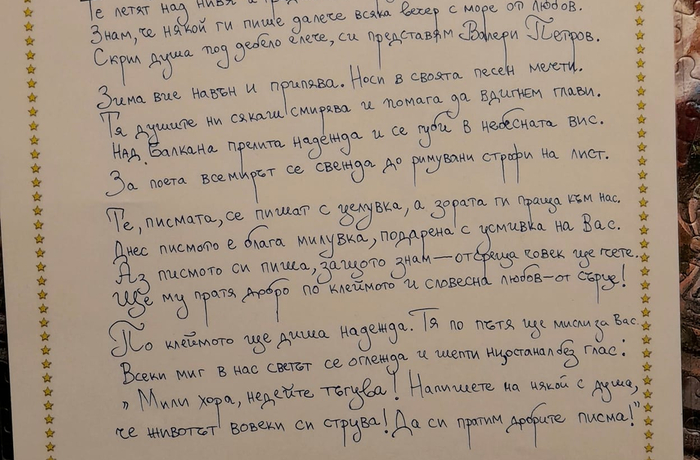 Те летят над нивя и
Знам, че някой ги пише далече всяка вечер с море от любов.
Скрил душа под дебело елече, си представям Валери Петров.
Зима вие навън и припява. Носи в своята песен мечти.
Тя душите ни сякаш смирява и помага да вдигнем глави.
Над Балкана прелита надежда и се губи в небесната вис.
За поета всемирът се свежда до римувани строфи на лист.
Те, писмата, се пишат с целувка, а зората ги праща към нас.
Днес писмото е блага милувка, подарена с усмивка на Вас.
Аз писмото си пиша, защото знам — отсреща човек ще чете.
Ще му пратя добро по клеймото и словесна любов – от сърце!
По клеймото ще диша надежда. Тя по пътя ще мисли за Вас.
Всеки миг в нас светът се оглежда и шепти неостанал без глас:
„Мили хора, недейте тъгува! Напишете на някой с душа,
че животът вовеки си струва! Да си пратим добрите писма!"